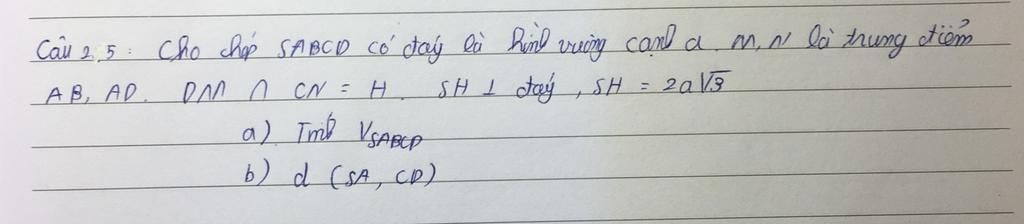 Câu 2.5: Cho chóp SABCD có đáy là hình vuông cạnh a. M, N là trung điểm
AB, AD. DM ∩ CN = H. SH ⊥ đáy, SH = 2a√3
a) Tính V_SABCD
b) d (SA, CD)